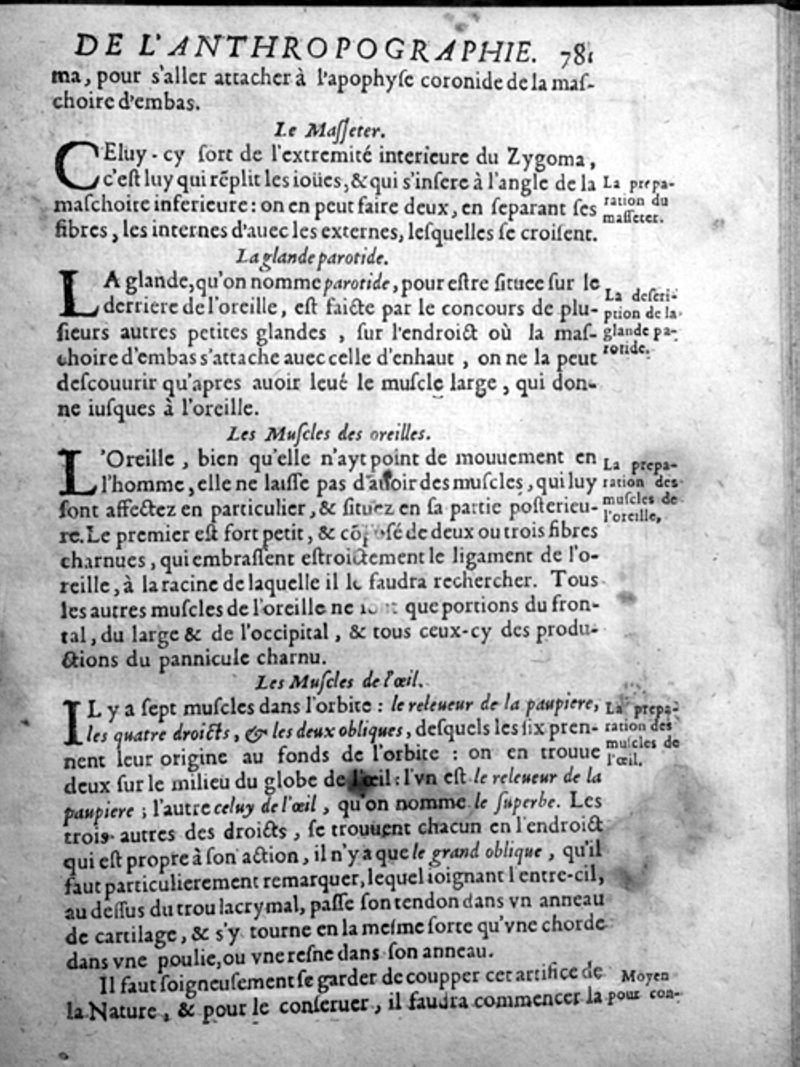 DE L'ANTHROPOGRAPHIE. 781
ma, pour s'aller attacher à l'apophyſe coronide de la maſ-
choire d'embas.
Le Maſſeter.
CEluy-cy ſort de l'extremité interieure du Zygoma,
c'eſt luy qui rēplit les ioües, & qui s'inſere à l'angle de la
maſchoire inferieure: on en peut faire deux, en ſeparant ſes
fibres, les internes d'auec les externes, leſquelles ſe croiſent.
La prepa-
ration du
maſſeter.
La glande parotide.
LA glande, qu'on nomme parotide, pour eſtre ſituee ſur le
derriere de l'oreille, eſt faicte par le concours de plu-
ſieurs autres petites glandes, ſur l'endroict où la maſ-
choire d'embas s'attache auec celle d'enhaut, on ne la peut
deſcouurir qu'apres auoir leué le muſcle large, qui don-
ne iuſques à l'oreille.
La deſcri-
ption de la
glande pa-
rotide.
Les Muſcles des oreilles.
L'Oreille, bien qu'elle n'ayt point de mouuement en
l'homme, elle ne laiſſe pas d'auoir des muſcles, qui luy
ſont affectez en particulier, & ſituez en sa partie poſterieu-
re. Le premier eſt fort petit, & cōpoſé de deux ou trois fibres
charnues, qui embraſſent eſtroictement le ligament de l'o-
reille, à la racine de laquelle il le faudra rechercher. Tous
les autres muſcles de l'oreille ne ſont que portions du fron-
tal, du large & de l'occipital, & tous ceux-cy des produ-
ctions du pannicule charnu.
La prepa-
ration des
muſcles de
l'oreille,
Les Muſcles de l'œil.
IL y a ſept muſcles dans l'orbite: le releueur de la paupiere,
les quatre droicts, & les deux obliques, deſquels les ſix pren-
nent leur origine au fonds de l'orbite: on en trouue
deux ſur le milieu du globe de l'œil: l'vn eſt le releueur de la
paupiere; l'autre celuy de l'œil, qu'on nomme le ſuperbe. Les
trois autres des droicts, ſe trouuent chacun en l'endroict
qui eſt propre à ſon action, il n'y a que le grand oblique, qu'il
faut particulierement remarquer, lequel ioignant l'entre-cil,
au deſſus du trou lacrymal, paſſe ſon tendon dans vn anneau
de cartilage, & s'y tourne en la meſme ſorte qu'vne chorde
dans vne poulie, ou vne reſne dans ſon anneau.
La prepa-
ration des
muſcles de
l'œil.
Il faut ſoigneuſement ſe garder de coupper cet artifice de
la Nature, & pour le conſeruer, il faudra commencer la
Moyen
pour con-